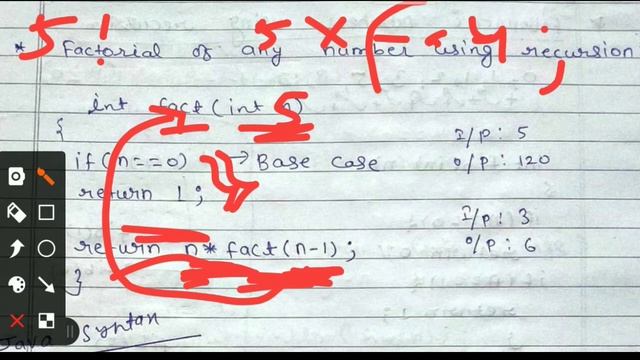 5! 5 X
* Factorial of any number using recursion
int fact(int n) 5
{
I/P: 5
if(n==0) → Base case
O/P: 120
return 1;
I/P: 3
return n* fact(n-1);
O/P: 6
}
Java Syntax